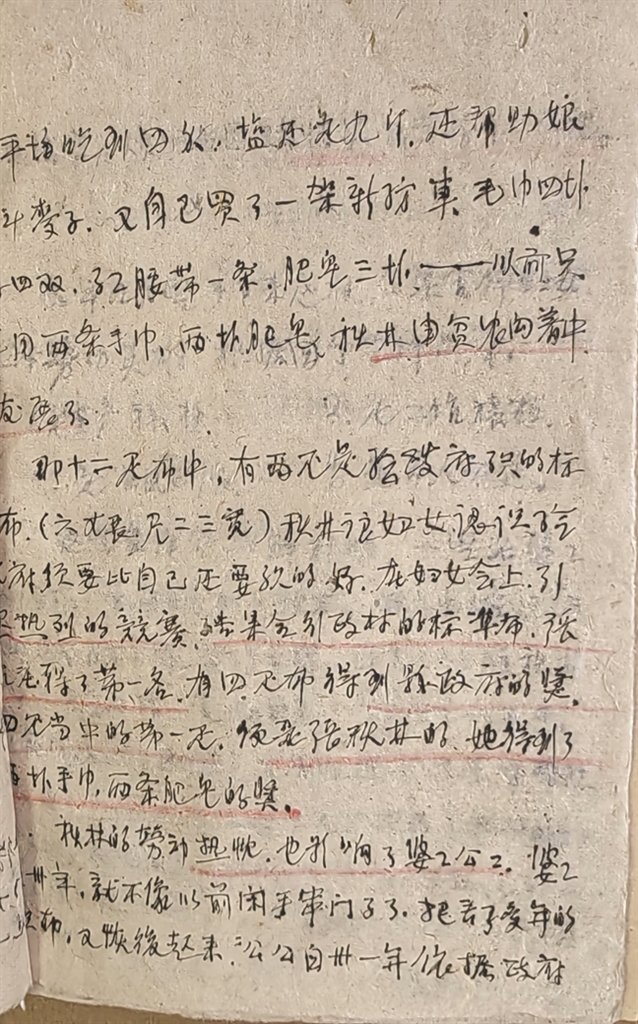 平均吃到四次，盐还熬九斤，还帮助娘
麦子，又自己買了一架新紡車，毛巾四块
四双，红腰带一条，肥皂三块——以前只
用两条手巾，两块肥皂，秋林由貧农向着中
农发
那十二疋布中，有两疋是给政府织的标
布（六丈長尺二三寬）秋林让妇女認识给
府须要比自己还要织的好，在妇女会上，引
起热烈的競賽，结果全行政村的标準布，張
得了第一名，有四疋布得到縣政府的獎，
四疋当中的第一疋，便是張秋林的，她得到了
块手巾，两条肥皂的奖。
秋林的勞动热忱，也影响了婆婆公公，婆婆
卅年，就不像以前闲手串门子了，把丢了多年的
织布，又恢復起来，公公自卅一年依据政府